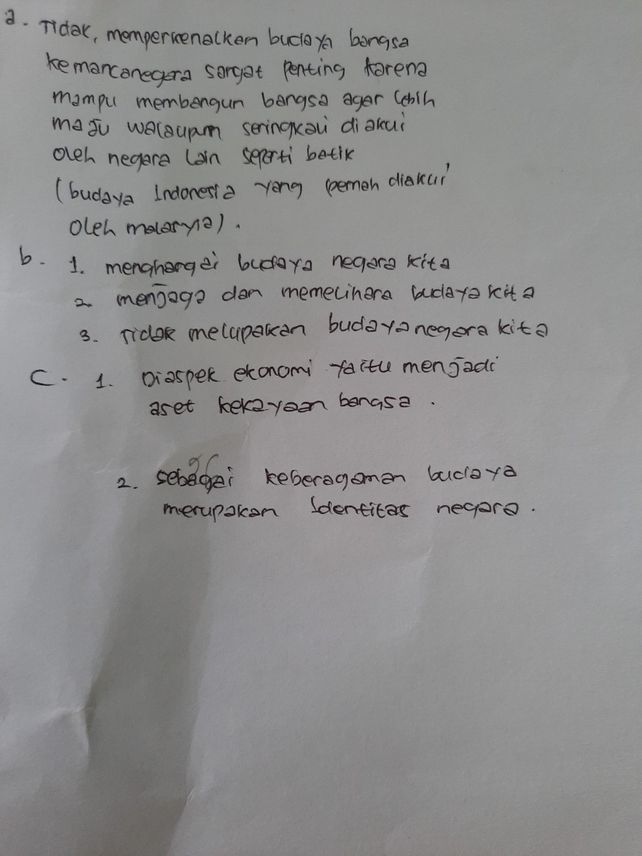 a. Tidak, memperkenalkan budaya bangsa
kemancanegara sangat penting karena
mampu membangun bangsa agar lebih
maju walaupun seringkali diakui
oleh negara lain seperti batik
(budaya Indonesia yang pernah diakui
oleh malasyia).
b. 1. menghargai budaya negara kita
2 menjaga dan memelihara budaya kita
3. Tidak melupakan budaya negara kita
C. 1. Diaspek ekonomi yaitu menjadi
aset kekayaan bangsa.
2. sebagai keberagaman budaya
merupakan Identitas negara.